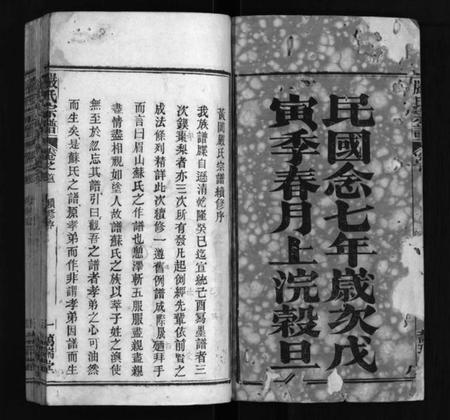 民國念七年歲次戊
寅季春月上浣穀旦
黃岡嚴氏宗譜續修序
我族譜牒自遜清乾隆癸巳迄宣統己酉寫墨譜者三
次鋟棗梨者亦三次所有發凡起例經先輩依前賢之
成法條列精詳此次續修一遵舊例譜成陳展廼拜手
而言曰眉山蘇氏之作譜也愍澤斬五服服盡親盡親
盡情盡相視如塗人故譜蘇氏之族以萃子姓之渙使
無至於忽忘其譜引曰觀吾之譜者孝弟之心可油然
而生矣是蘇氏之譜原孝弟而作非謂孝弟因譜而生
嚴氏宗譜
續修序
一